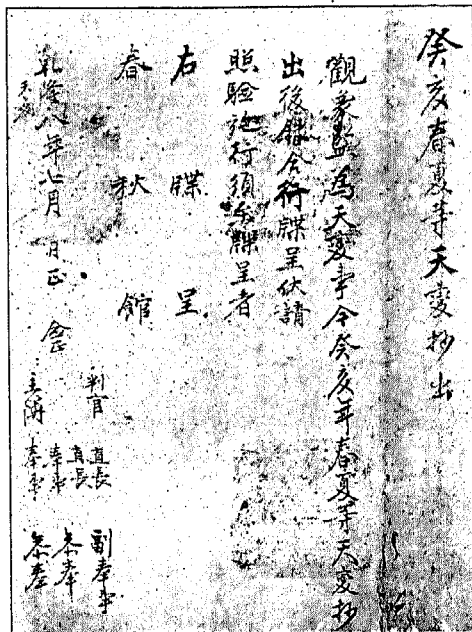 癸亥春夏等天變抄出
觀象監爲天變事今癸亥年春夏等天變抄
出後錄合行牒呈伏請
照驗施行須至牒呈者
右牒呈
春秋館
乾隆八年七月 日正 僉正 判官 直長 副奉事
主簿 奉事 參奉
直長
奉事 參奉